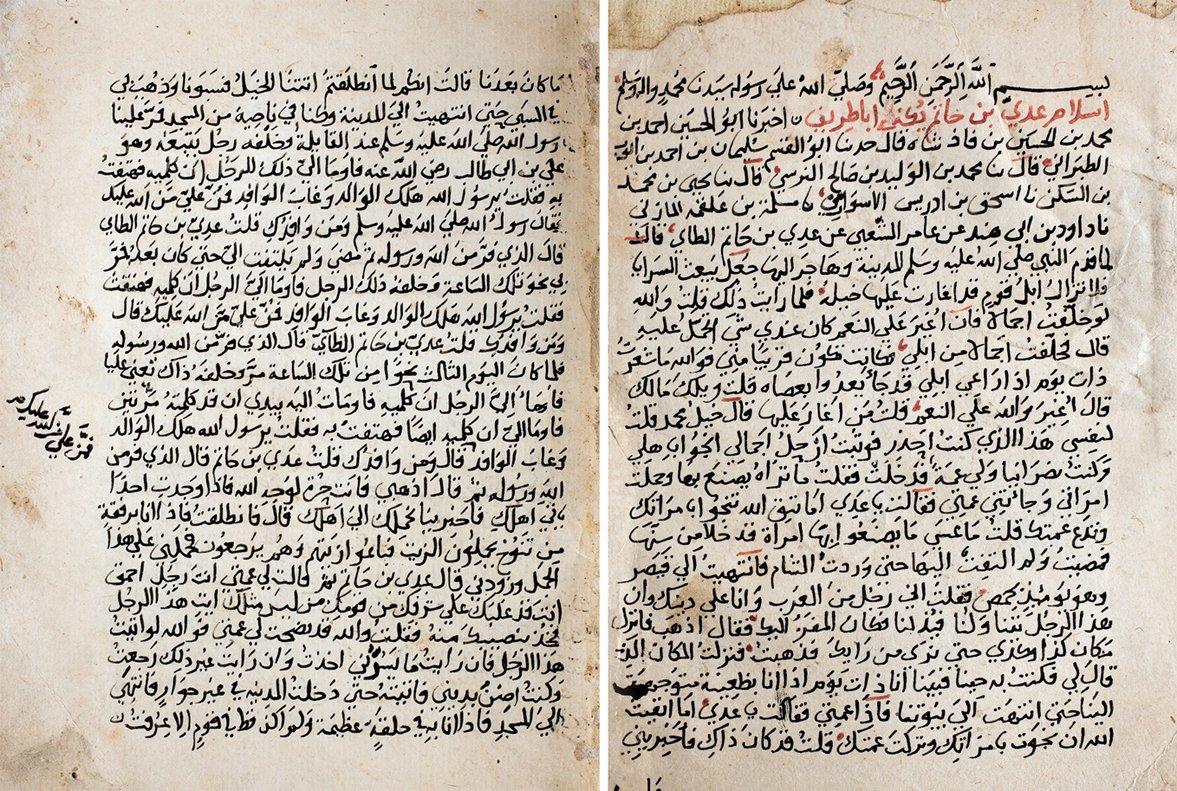 بسم الله الرحمن الرحيم وصلى الله على رسوله سيدنا محمد واله وسلم
اسلام عدي بن حاتم يكنى اباطريف اخبرنا ابو الحسين احمد بن
محمد بن الحسين بن فاذشاه قال حدثنا ابو القسم سليمان بن احمد بن
الطبراني قال نا محمد بن الوليد بن صالح النرسي قال نا يحيى بن محمد
بن السكن نا اسحق بن ادريس الاسواري نا مسلمة بن علقمة المازني
نا داود بن ابي هند عن عامر الشعبي عن عدي بن حاتم الطاي قال
لما قدم النبي صلى الله عليه وسلم المدينة وهاجر اليها جعل يبعث السرايا
فلا تزال ابل قوم قد اغارت عليها خيله فلما رايت ذلك قلت والله
لو خلفت اجمالا من ابلي فكانت تكون قريبا مني فوالله ما شعرت
ذات يوم اذا راعي ابلي قد جا يعدو بعصاه قلت ويلك مالك
قال اغير والله على النعم قلت من اغار عليها قال خيل محمد قلت
لنفسي هذا الذي كنت احذر فوثبت ارحل اجمالي انجوا باهلي
وكنت نصرانيا ولي عمة فدخلت فقلت ما تراه يصنع بها وحملت
امراتي وجائتني عمتي فقالت يا عدي اما تتقي الله تنجوا بامراتك
وتدع عمتك قلت ما عسى ما يصنعوا بها امراة قد خلا من سنها
فمضيت ولم التفت اليها حتى وردت الشام فانتهيت الى قيصر
وهو يومئذ بحمص فقلت اني رجل من العرب وانا على دينك وان
هذا الرجل يتناولنا فكان المفر اليك فقال اذهب فانزل
مكان كذا وكذي حتى نرى من رايك فذهبت فنزلت المكان الذي
قال لي فكنت به حينا فبينا انا ذات يوم اذا انا بظعينة متوجهة
الينا حتى انتهت الى بيوتنا فاذا عمتي فقالت يا عدي اما اتقيت
الله ان نجوت بامراتك وتركت عمتك قلت قد كان ذاك فاخبريني
ما كان بعدنا قالت انكم لما انطلقتم اتتنا الخيل فسبونا وذهب بي
في السبي حتى انتهيت الى المدينة وكنا في ناحية من المسجد فمر علينا
رسول الله صلى الله عليه وسلم عند القايلة وخلفه رجل يتبعه وهو
علي بن ابي طالب رضي الله عنه فاوما الي ذلك الرجل ان كلميه فهتفت
به فقلت يرسول الله هلك الوالد وغاب الوافد فمن علي من الله عليك
فقال رسول الله صلى الله عليه وسلم ومن وافدك قلت عدي بن حاتم الطاي
قال الذي فر من الله ورسوله ثم مضى ولم يلتفت الي حتى كان بعد فمر
بي نحو تلك الساعة وخلفه ذلك الرجل فاوما الي الرجل ان كلميه فهتفت
فقلت يرسول الله هلك الوالد وغاب الوافد فمن علي من الله عليك قال
ومن وافدك قلت عدي بن حاتم الطاي قال الذي فر من الله ورسوله
فلما كان اليوم الثالث نحوا من تلك الساعة مر وخلفه ذاك
الي الرجل ان كلميه فاومات اليه بيدي ان قد كلمته مرتين
فاوما الي ان كلميه ايضا فهتفت به فقلت يرسول الله هلك الوالد
وغاب الوافد قال ومن وافدك قلت عدي بن حاتم قال الذي فر من
الله ورسوله ثم قال اذهبي فانت حرة لوجه الله فاذا وجدت احدا
ياتي اهلك فاخبرينا نحملك الى اهلك قال فانطلقت فاذا انا برفقة
من تنوخ يحملون الزيت فباعوا زيتهم وهم يرجعون فحملني على هذا
الجمل وزودني قال عدي بن حاتم ثم قالت لي عمتي انت رجل احمق
انت قد غلبك على شرفك من قومك من ليس مثلك ايت هذا الرجل
فخذ بنصيبك منه فقلت والله قد نصحت لي عمتي فوالله لو اتيت
هذا الرجل فان رايت ما يسرني اخذت وان رايت غير ذلك رجعت
وكنت اضن بديني فاتيته حتى دخلت المدينة في غير جوار فانتهي
الى المسجد فاذا انا به في حلقة عظيمة ولم اكن قط في قوم الا عرفت
فمن علي من الله عليك